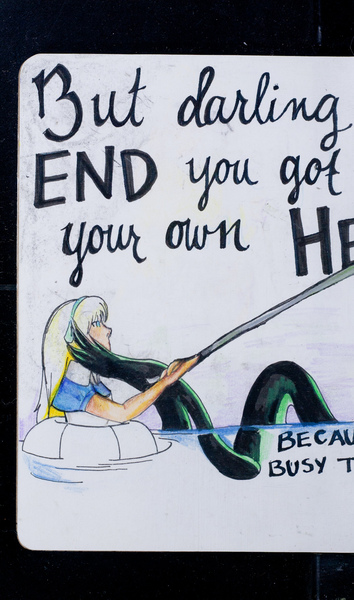 But darling
END you got
your own HE
BECAU
BUSY T